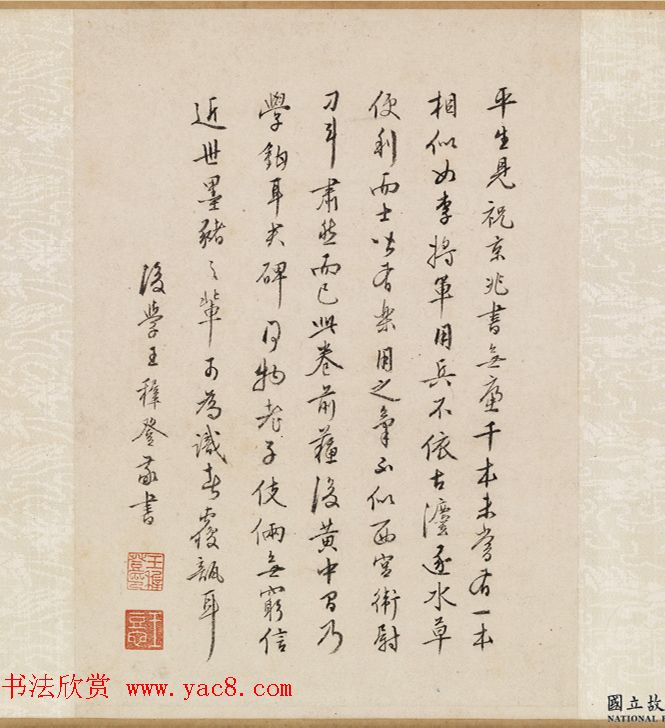 平生見祝京兆書無慮千本未嘗有一本
相似如李將軍用兵不依古灋逐水草
便利而士皆有樂用之氣不似西宮衛尉
刁斗肅然而已此卷前蘇後黃中間乃
學耳碑物老子伎倆無窮信
近世墨豬之輩可為覆瓿耳
後學王穉登敬書
王穉登印
书法欣赏 www.yac8.com
國立故
NATIONAL